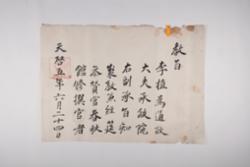 教旨
李植爲通政
大夫承政院
右副承旨知
製教兼經筵
參贊官春秋
館修撰官者
天啓五年六月二十四日